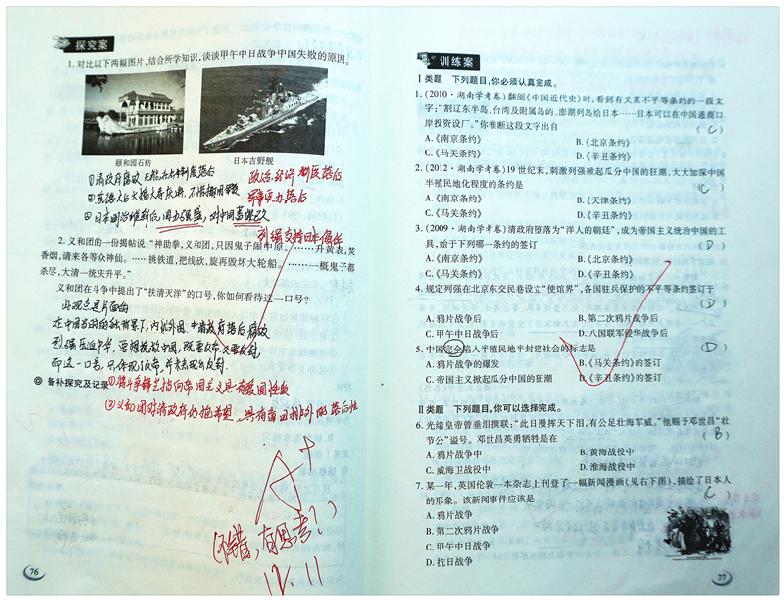 探究案
1. 对比以下两幅图片,结合所学知识,谈谈甲午中日战争中国失败的原因。
颐和园石舫
日本吉野舰
①清政府腐败
政治、经济 制度落后
军事实力落后
列强支持日本侵华
2. 义和团的一份揭帖说:“神助拳,义和团,只因鬼子闹中原。……升黄表,焚
香烟,请来各等众神仙。……挑铁道,把线砍,旋再毁坏大轮船。……一概鬼子都
杀尽,大清一统庆升平。”
义和团在斗争中提出了“扶清灭洋”的口号,你如何看待这一口号?
此观点是片面的
备补探究及记录
①将斗争锋芒指向帝国主义具有爱国性质
A+
(不错,有思考?)
12.11
76
训练案
Ⅰ类题 下列题目,你必须认真完成。
1. (2010·湖南学考卷)翻阅《中国近代史》时,看到有关某不平等条约的一段文
字:“割辽东半岛、台湾及附属岛屿、澎湖列岛给日本……日本可以在中国通商口
岸投资设厂。”你准断这段文字出自 (C)
A.《南京条约》 B.《北京条约》
C.《马关条约》 D.《辛丑条约》
2. (2012·湖南学考卷)19世纪末,刺激列强掀起瓜分中国的狂潮,大大加深中国
半殖民地化程度的条约是 (C)
A.《南京条约》 B.《天津条约》
C.《马关条约》 D.《辛丑条约》
3. (2009·湖南学考卷)清政府堕落为“洋人的朝廷”,成为帝国主义统治中国的工
具,始于下列哪一条约的签订 (D)
A.《南京条约》 B.《北京条约》
C.《马关条约》 D.《辛丑条约》
4. 规定列强在北京东交民巷设立“使馆界”,各国驻兵保护的不平等条约签订于
(D)
A. 鸦片战争后 B. 第二次鸦片战争后
C. 甲午中日战争后 D. 八国联军侵华战争后
5. 中国完全陷入半殖民地半封建社会的标志是 (D)
A. 鸦片战争的爆发 B.《马关条约》的签订
C. 帝国主义掀起瓜分中国的狂潮 D.《辛丑条约》的签订
Ⅱ类题 下列题目,你可以选择完成。
6. 光绪皇帝曾垂泪撰联:“此日漫挥天下泪,有公足壮海军威。”他赐予邓世昌“壮
节公”谥号。邓世昌英勇牺牲是在 (B)
A. 鸦片战争中 B. 黄海战役中
C. 威海卫战役中 D. 淮海战役中
7. 某一年,英国伦敦一本杂志上刊登了一幅新闻漫画(见右下图),描绘了日本人
的形象。该新闻事件应该是 (C
A. 鸦片战争
B. 第二次鸦片战争
C. 甲午中日战争
D. 抗日战争
77